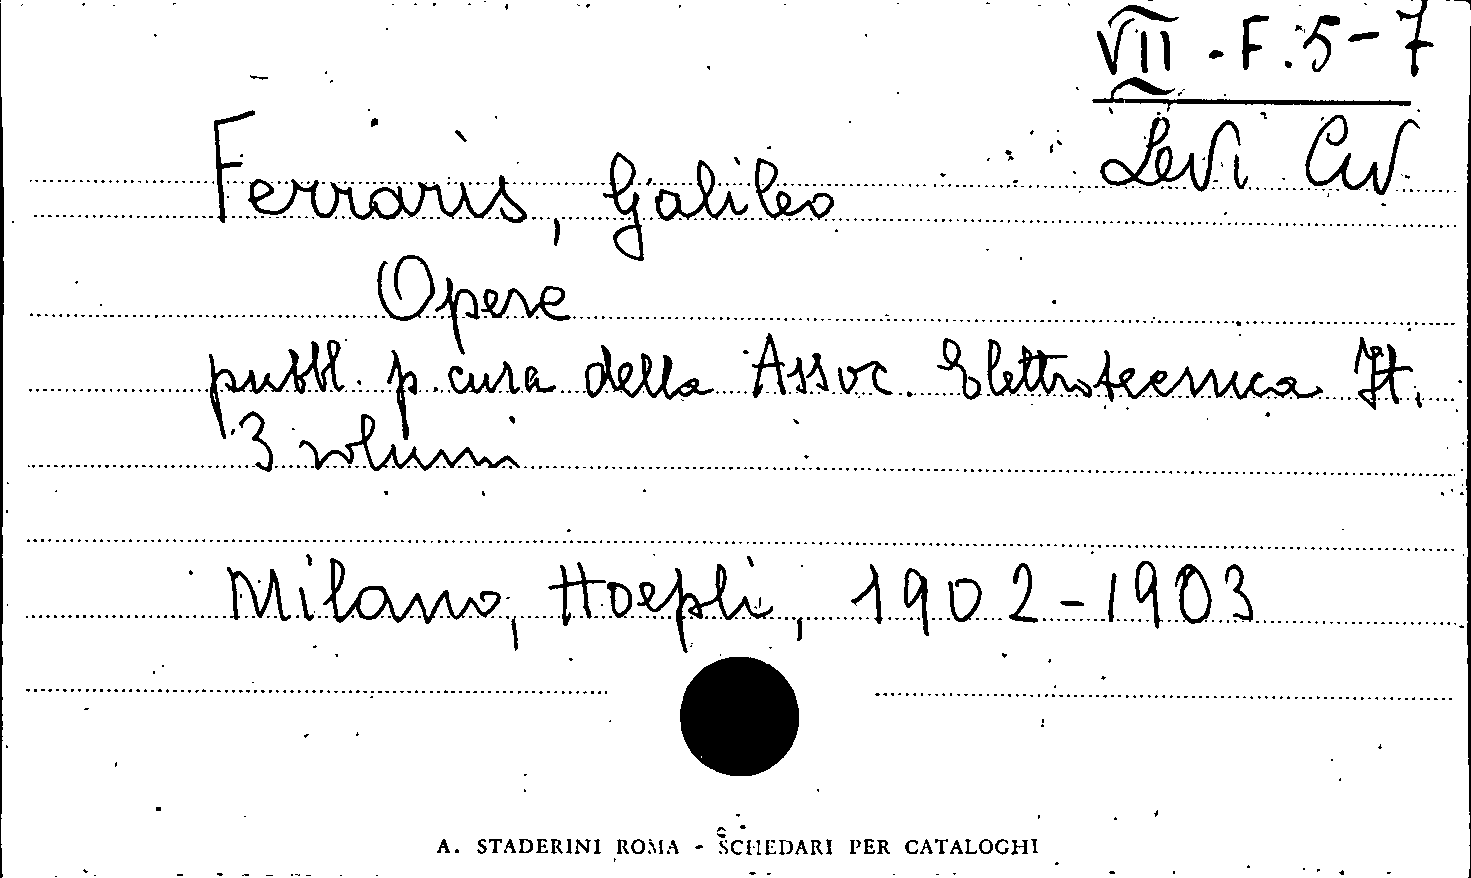 VII - F. 5-7
Levi Civ.
Ferraris, Galileo
Opere
pubbl. p. cura della Assoc. Elettrotecnica It.
3 volumi
Milano, Hoepli, 1902-1903
A. STADERINI ROMA - SCHEDARI PER CATALOGHI